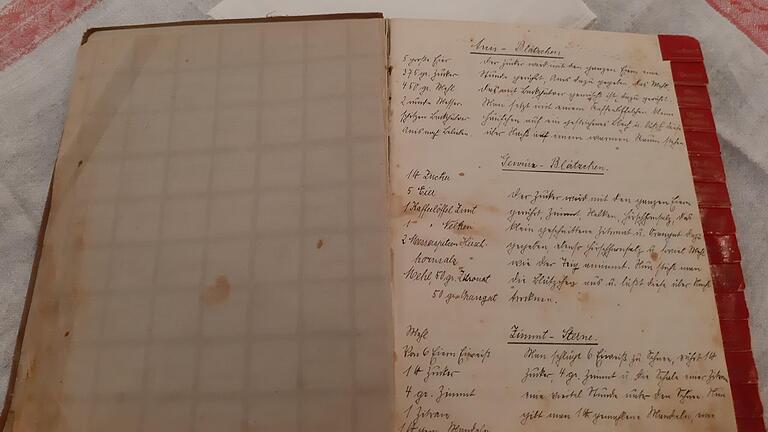 Anis - Blätzchen.
5 große Eier
375 gr. Zucker
450 gr. Mehl
2 runde Messer-
spitzen Backpulver
Anis nach Belieben.
Der Zucker wird mit den ganzen Eiern eine
Stunde gerührt. Anis dazu gegeben das Mehl,
das mit Backpulver gemischt ist, dazu gerührt.
Man setzt mit einem Kaffeelöffelchen kleine
Häufchen auf ein gestrichenes Blech u. läßt diese
über Nacht auf einem warmen Raum stehen.
Gewürz - Blätzchen.
1 ℔ Zucker
5 Eier
1 Kaffelöffel Zimt
1 " " Nelken
2 Messerspitzen Hirsch-
hornsalz
Mehl, 50 gr. Zitronat
50 gr. Orangat
Der Zucker wird mit den ganzen Eiern
gerührt, Zimmt, Nelken, Hirschhornsalz, das
klein geschnittene Zitronat u. Orangat dazu
gegeben, ebenso Hirschhornsalz u. soviel Mehl
wie der Teig annimmt. Nun sticht man
die Blätzchen aus u. läßt diese über Nacht
trocknen.
Zimmt - Sterne.
Mehl
Von 6 Eiern Eiweiß
1 ℔ Zucker
4 gr. Zimmt
1 Zitrone
1 ℔ gem. Mandeln
Man schlägt 6 Eiweiß zu Schnee, rührt 1 ℔
Zucker, 4 gr. Zimmt u. die Schale einer Zitrone
eine viertel Stunde unter den Schnee. Nun
gibt man 1 ℔ gemahlene Mandeln, und